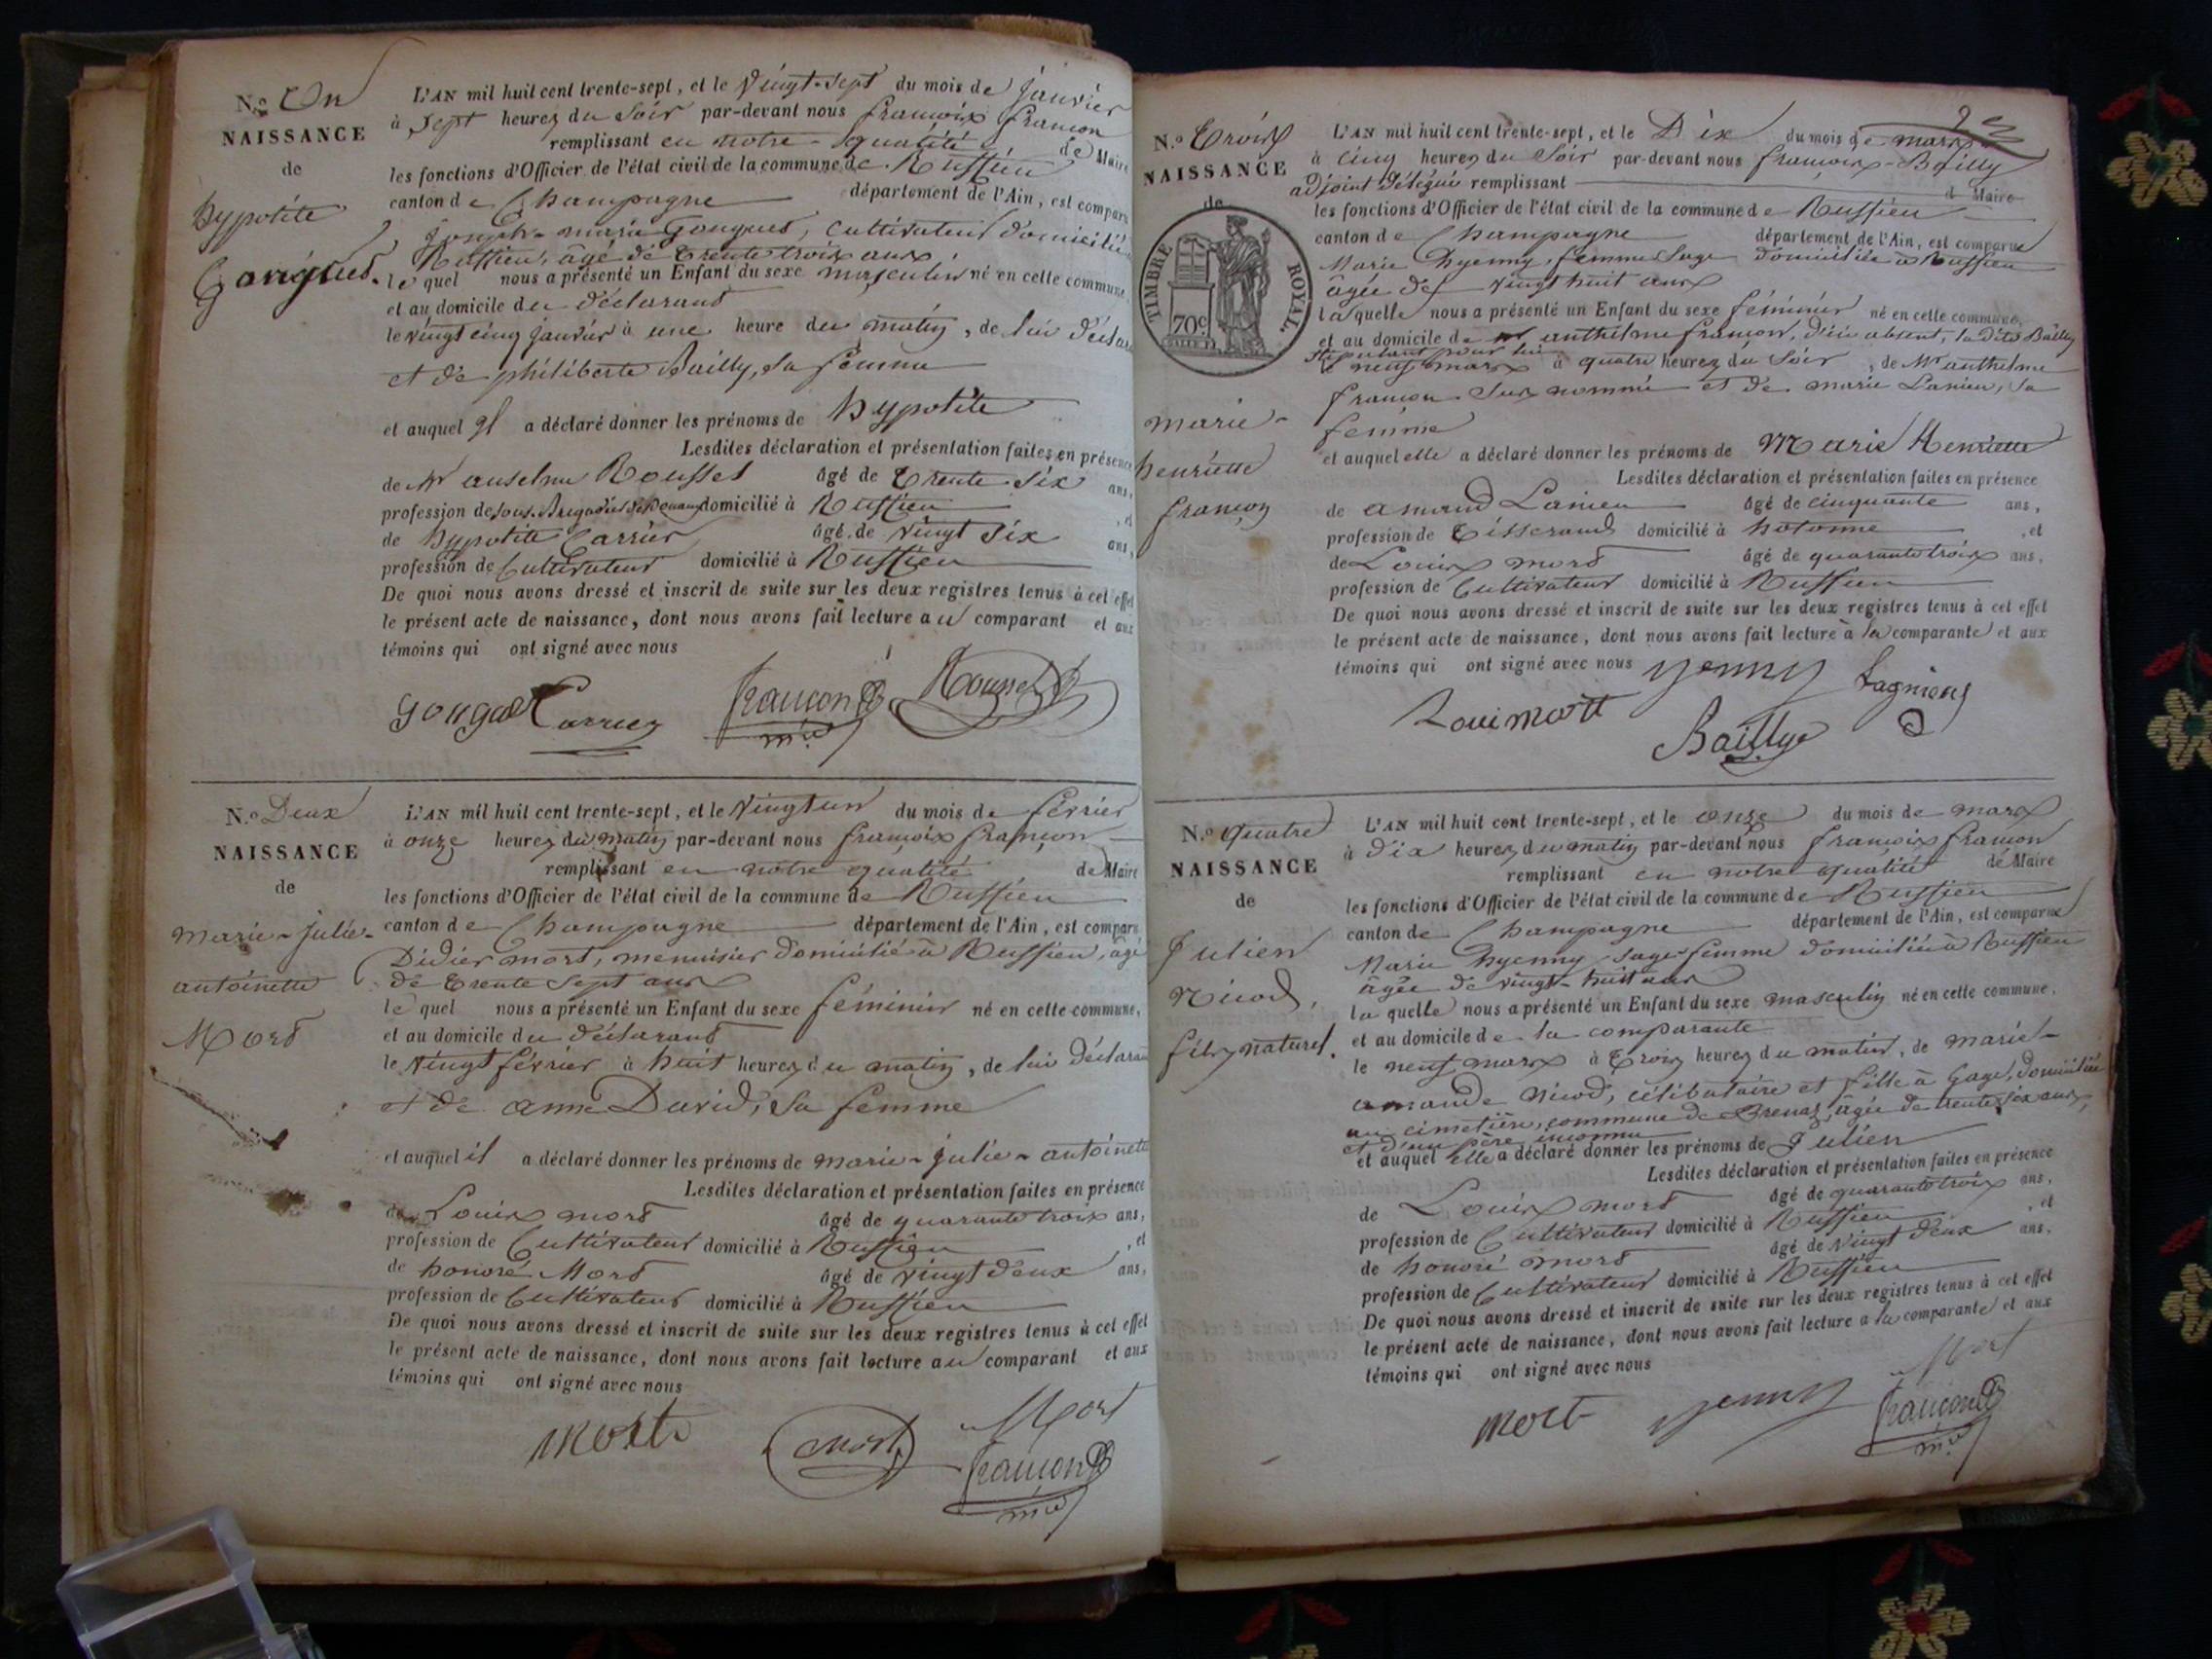 N.o Un
NAISSANCE
de
hypolite
Gougues.
L'AN mil huit cent trente-sept, et le vingt-sept du mois de janvier
à sept heures du soir par-devant nous françois françon
remplissant en notre qualité de Maire
les fonctions d'Officier de l'état civil de la commune de Ruffieu
canton de Champagne département de l'Ain, est comparu
joseph-marie Gougues, cultivateur domicilié
Ruffieu, âgé de trente trois ans
le quel nous a présenté un Enfant du sexe masculin né en cette commune,
et au domicile du déclarant
le vingt cinq janvier à une heure du matin, de lui déclar
et de philiberte Bailly, sa femme
et auquel il a déclaré donner les prénoms de hypolite
Lesdites déclaration et présentation faites en présence
de Mr anselme Rousset âgé de trente six ans,
profession de sous Brigadier de Douanes domicilié à Ruffieu , et
de hypolite Carrier âgé de vingt six ans,
profession de Cultivateur domicilié à Ruffieu
De quoi nous avons dressé et inscrit de suite sur les deux registres tenus à cet effet
le présent acte de naissance, dont nous avons fait lecture au comparant et aux
témoins qui ont signé avec nous
Carrier françon Rousset
mre
N.o Deux
NAISSANCE
de
marie-julie-
antoinette
Mort
L'AN mil huit cent trente-sept, et le vingt un du mois de février
à onze heures du matin par-devant nous françois françon
remplissant en notre qualité de Maire
les fonctions d'Officier de l'état civil de la commune de Ruffieu
canton de Champagne département de l'Ain, est comparu
Didier mort, menuisier domicilié à Ruffieu, âgé
de trente sept ans
le quel nous a présenté un Enfant du sexe féminin né en cette commune,
et au domicile du déclarant
le vingt février à huit heures du matin, de lui déclarant
et de anne David, sa femme
et auquel il a déclaré donner les prénoms de marie-julie-antoinette
Lesdites déclaration et présentation faites en présence
de Louis mort âgé de quarante trois ans,
profession de Cultivateur domicilié à Ruffieu , et
de honoré Mort âgé de vingt deux ans,
profession de Cultivateur domicilié à Ruffieu
De quoi nous avons dressé et inscrit de suite sur les deux registres tenus à cet effet
le présent acte de naissance, dont nous avons fait lecture au comparant et aux
témoins qui ont signé avec nous
Mort
mort mort
françon
mre
2
N.o Trois
NAISSANCE
de
TIMBRE ROYAL.
70c
marie-
henriette
françon
L'AN mil huit cent trente-sept, et le Dix du mois de mars
à cinq heures du soir par-devant nous françois-Bailly
adjoint délégué remplissant d Maire
les fonctions d'Officier de l'état civil de la commune de Ruffieu
canton de Champagne département de l'Ain, est comparue
Marie hyenny, femme sage domiciliée à Ruffieu
âgée de vingt huit ans
laquelle nous a présenté un Enfant du sexe féminin né en cette commune,
et au domicile de anthelme françon, d'ici absent, la dite Bailly
stipulant pour lui
le neuf mars à quatre heures du soir, de Mr anthelme
françon sus nommé et de marie Lanieu, sa
femme
et auquel elle a déclaré donner les prénoms de Marie Henriette
Lesdites déclaration et présentation faites en présence
de amand Lanieu âgé de cinquante ans,
profession de tisserand domicilié à hotonne , et
de Louis mort âgé de quarante trois ans,
profession de Cultivateur domicilié à Ruffieu
De quoi nous avons dressé et inscrit de suite sur les deux registres tenus à cet effet
le présent acte de naissance, dont nous avons fait lecture à la comparante et aux
témoins qui ont signé avec nous yenny
Loui mort Bailly
N.o quatre
NAISSANCE
de
Julien
Nicod,
fils naturel.
L'AN mil huit cent trente-sept, et le onze du mois de mars
à dix heures du matin par-devant nous françois françon
remplissant en notre qualité de Maire
les fonctions d'Officier de l'état civil de la commune de Ruffieu
canton de Champagne département de l'Ain, est comparue
Marie hyenny sage-femme domiciliée à Ruffieu
âgée de vingt-huit ans
la quelle nous a présenté un Enfant du sexe masculin né en cette commune,
et au domicile de la comparante
le neuf mars à trois heures du matin, de marie-
amande nicod, célibataire et fille à gage, domiciliée
au cimetière, commune de Brenaz, âgée de trente six ans,
et d'un père inconnu
et auquel elle a déclaré donner les prénoms de Julien
Lesdites déclaration et présentation faites en présence
de Louis mort âgé de quarante trois ans,
profession de Cultivateur domicilié à Ruffieu , et
de honoré mort âgé de vingt deux ans,
profession de Cultivateur domicilié à Ruffieu
De quoi nous avons dressé et inscrit de suite sur les deux registres tenus à cet effet
le présent acte de naissance, dont nous avons fait lecture a la comparante et aux
témoins qui ont signé avec nous
Mort
mort yenny françon
mre